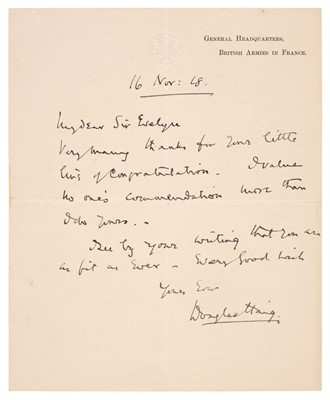 GENERAL HEADQUARTERS,
BRITISH ARMIES IN FRANCE.
16 Nov: 18.
My dear Sir Evelyn
Very many thanks for your little
line of Congratulation – I value
no one's commendation more than
I do yours. –
I see by your writing that you are
as fit as ever – Every good wish
Yours Ever
Douglas Haig.